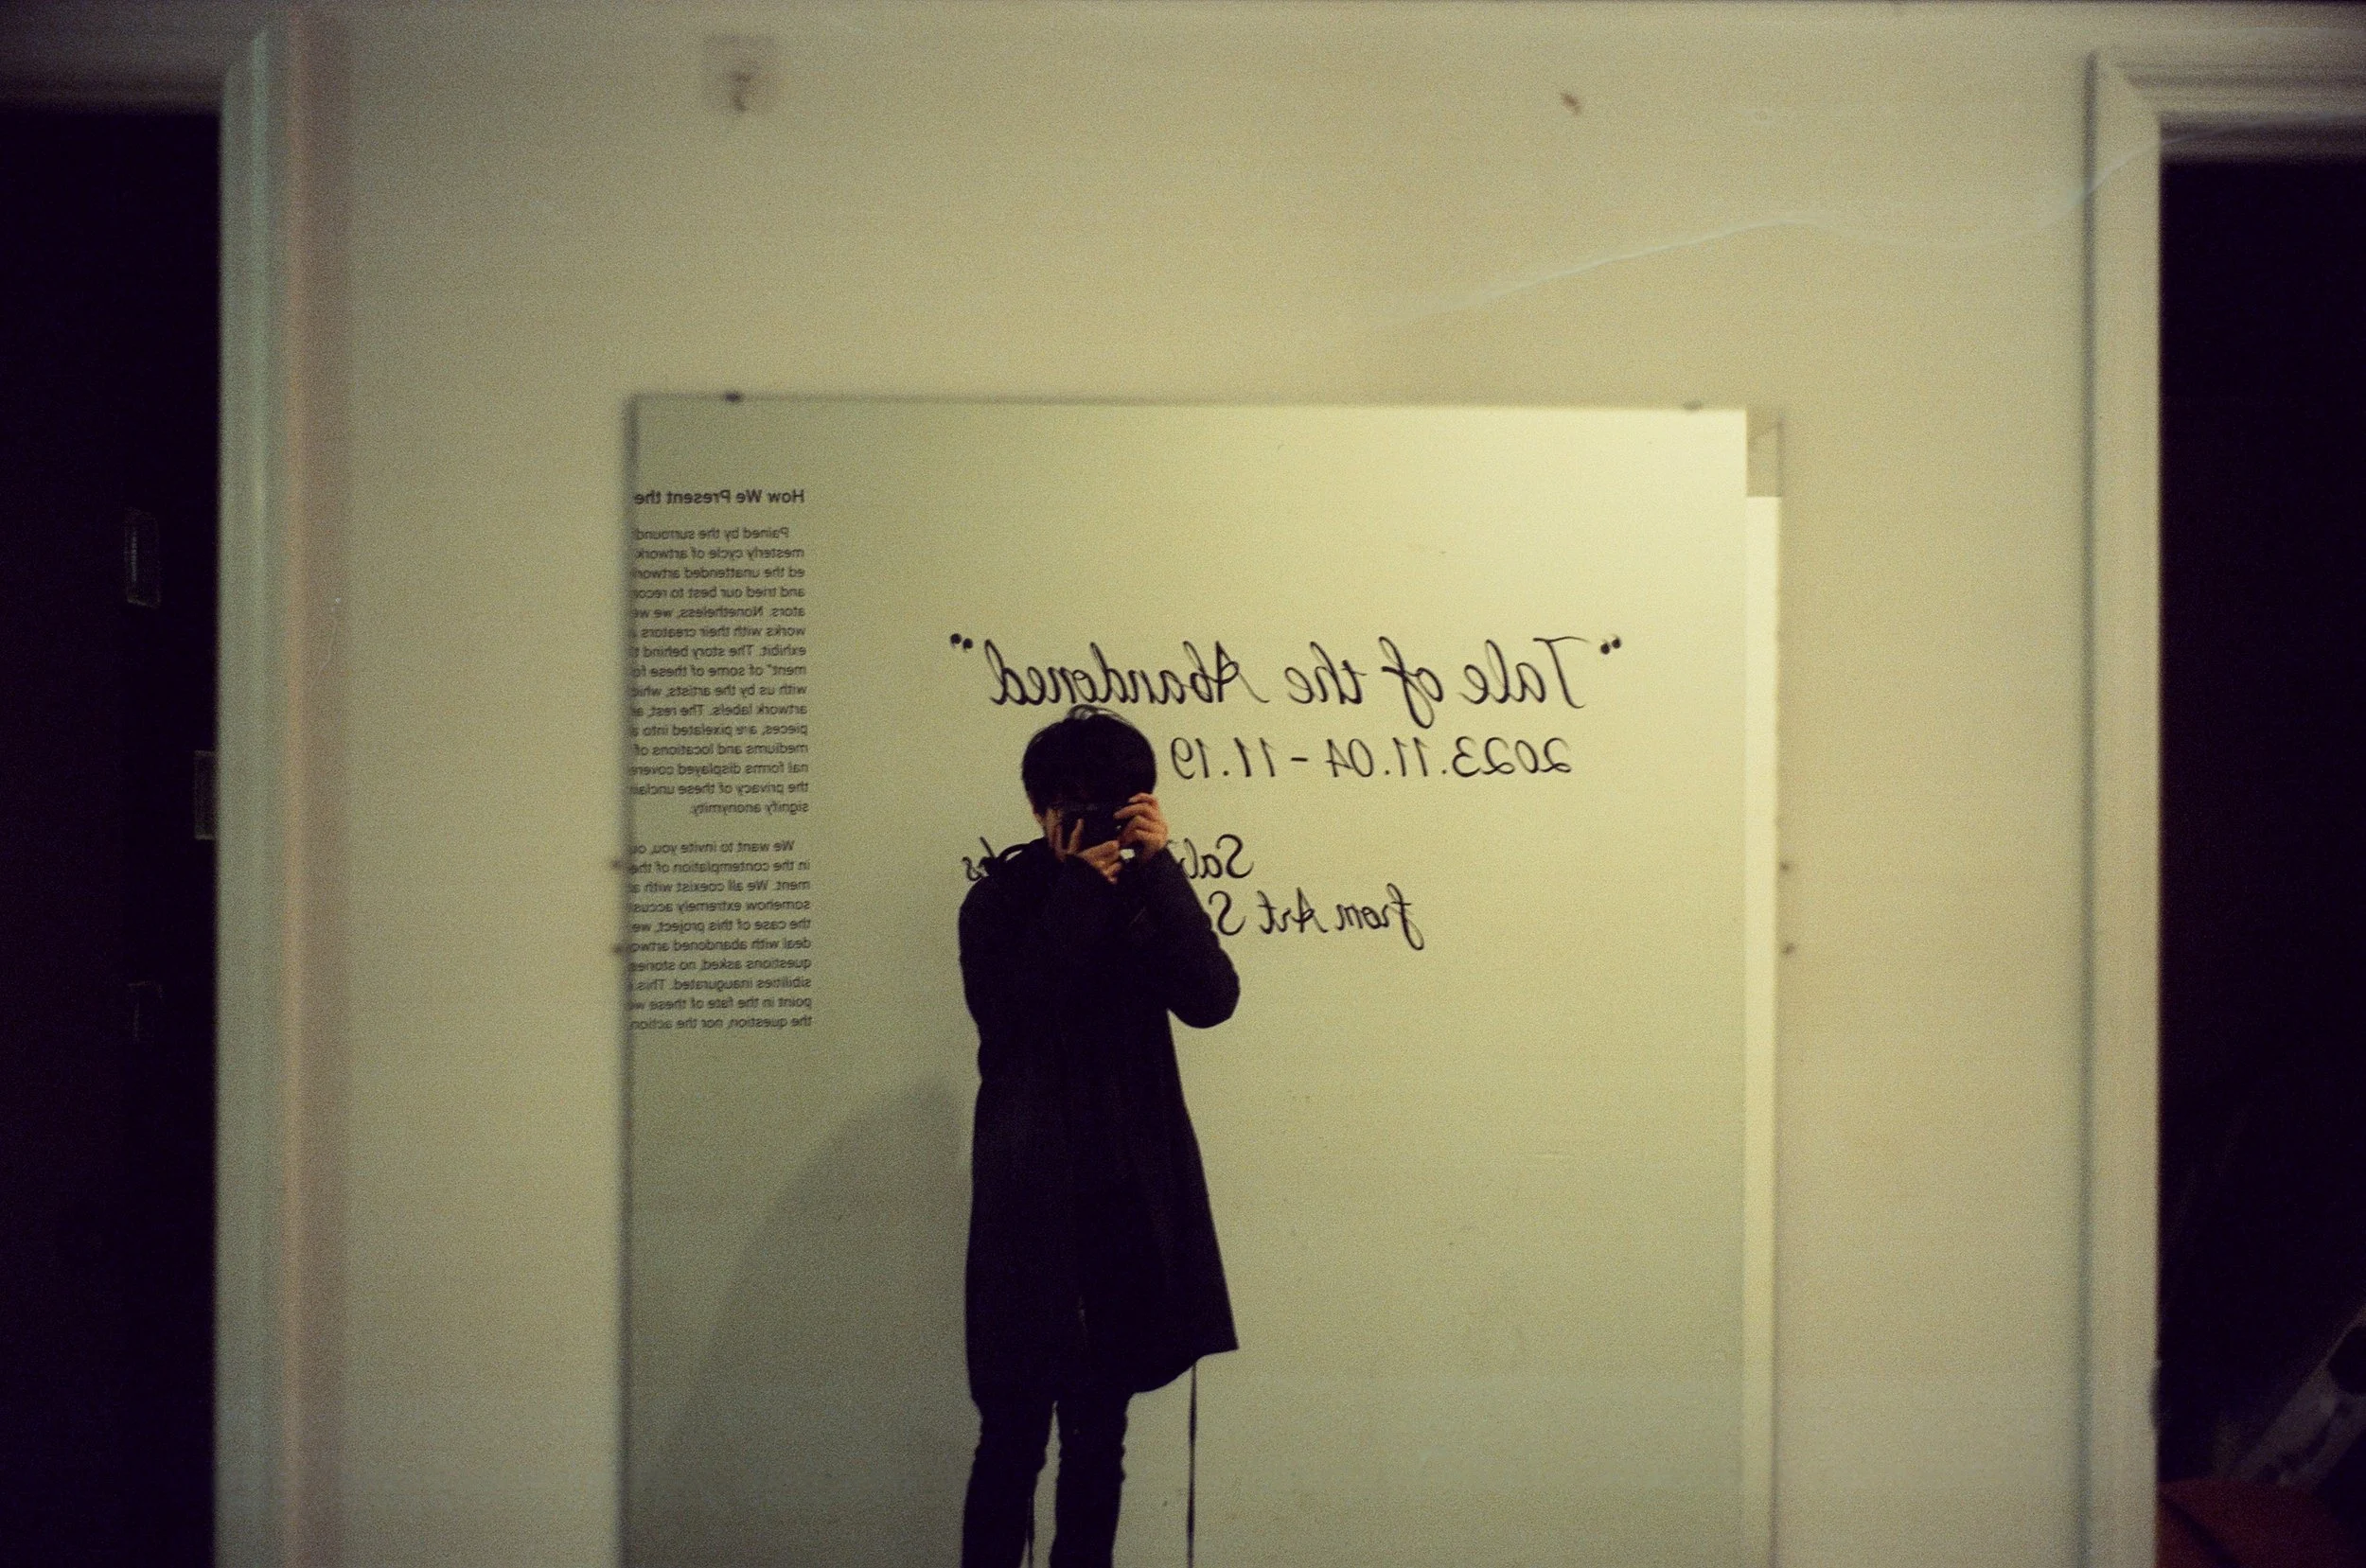 "Tale of the Abandoned"
2023.11.04 - 11.19
from Art S
How We Present the
Pained by the surround
mesterly cycle of artwork
ed the unattended artwor
and tried our best to reco
ators. Nonetheless, we we
works with their creators
exhibit. The story behind
ment" of some of these fo
with us by the artists, whi
artwork labels. The rest, a
pieces, are pixelated into a
mediums and locations of
nal forms displayed covere
the privacy of these unclai
signify anonymity.
We want to invite you, ou
in the contemplation of the
ment. We all coexist with a
somehow extremely accus
the case of this project, we
deal with abandoned artwo
questions asked, no stories
sibilities inaugurated. This
point in the fate of these w
the question, nor the action